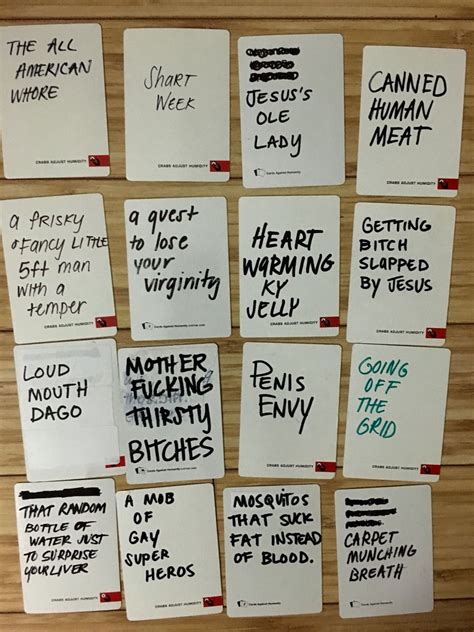 THE ALL
AMERICAN
WHORE
SHART
WEEK
CRABS ADJUST HUMIDITY
JESUS'S
OLE
LADY
Cards Against Humanity
CANNED
HUMAN
MEAT
CRABS ADJUST HUMIDITY
a frisky
fancy little
5ft man
with a
temper
CRABS ADJUST HUMIDITY
a quest
to lose
your
virginity
Cards Against Humanity
HEART
WARMING
KY
JELLY
CRABS ADJUST HUMIDITY
GETTING
BITCH
SLAPPED
BY JESUS
CRABS ADJUST HUMIDITY
LOUD
MOUTH
DAGO
MOTHER
FUCKING
THIRSTY
BITCHES
Cards Against Humanity
PENIS
ENVY
CRABS ADJUST HUMIDITY
GOING
OFF
THE
GRID
CRABS ADJUST HUMIDITY
THAT RANDOM
BOTTLE OF
WATER JUST
TO SURPRISE
YOUR LIVER
CRABS ADJUST HUMIDITY
A MOB
OF
GAY
SUPER
HEROS
CRABS ADJUST HUMIDITY
MOSQUITOS
THAT SUCK
FAT INSTEAD
OF BLOOD.
Cards Against Humanity
CARPET
MUNCHING
BREATH
Cards Against Humanity